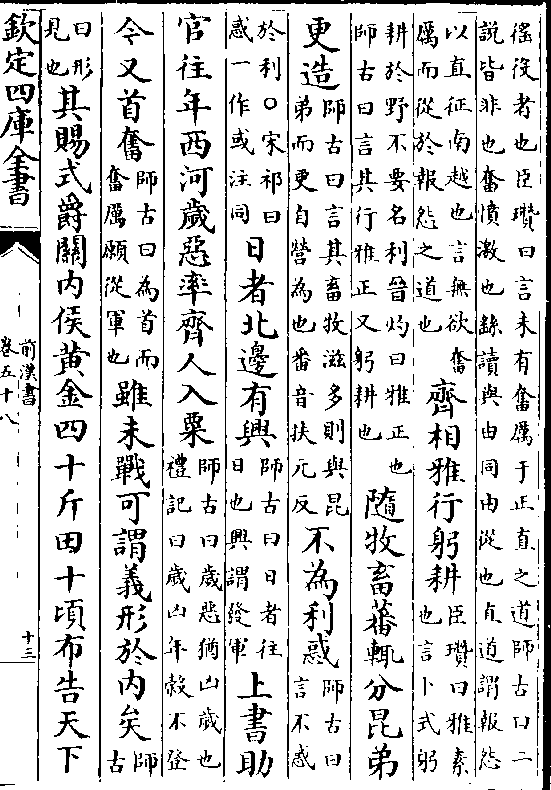 徭役者也臣瓚曰言未有奮厲于正直之道師古曰二
說皆非也奮憤激也繇讀與由同由從也直道謂報怨
以直征南越也言無欲奮
厲而從於報怨之道也
齊相雅行躬耕
臣瓚曰雅素
也言卜式躬
耕於野不要名利晉灼曰雅正也
師古曰言其行雅正又躬耕也
隨牧畜蕃輒分昆弟
更造
師古曰言其畜牧滋多則與昆
弟而更自營為也番音扶元反
不為利惑
師古曰
言不惑
於利○宋祁曰
惑一作或注同
日者北邊有興
師古曰日者往
日也興謂發軍
上書助
官往年西河歲惡率齊人入粟
師古曰歲惡猶凶歲也
禮記曰歲凶年穀不登
今又首奮
師古曰為首而
奮厲願從軍也
雖未戰可謂義形於內矣
師
古
曰形
見也
其賜式爵關內侯黃金四十斤田十頃布告天下
欽定四庫全書
前漢書
卷五十八
十三